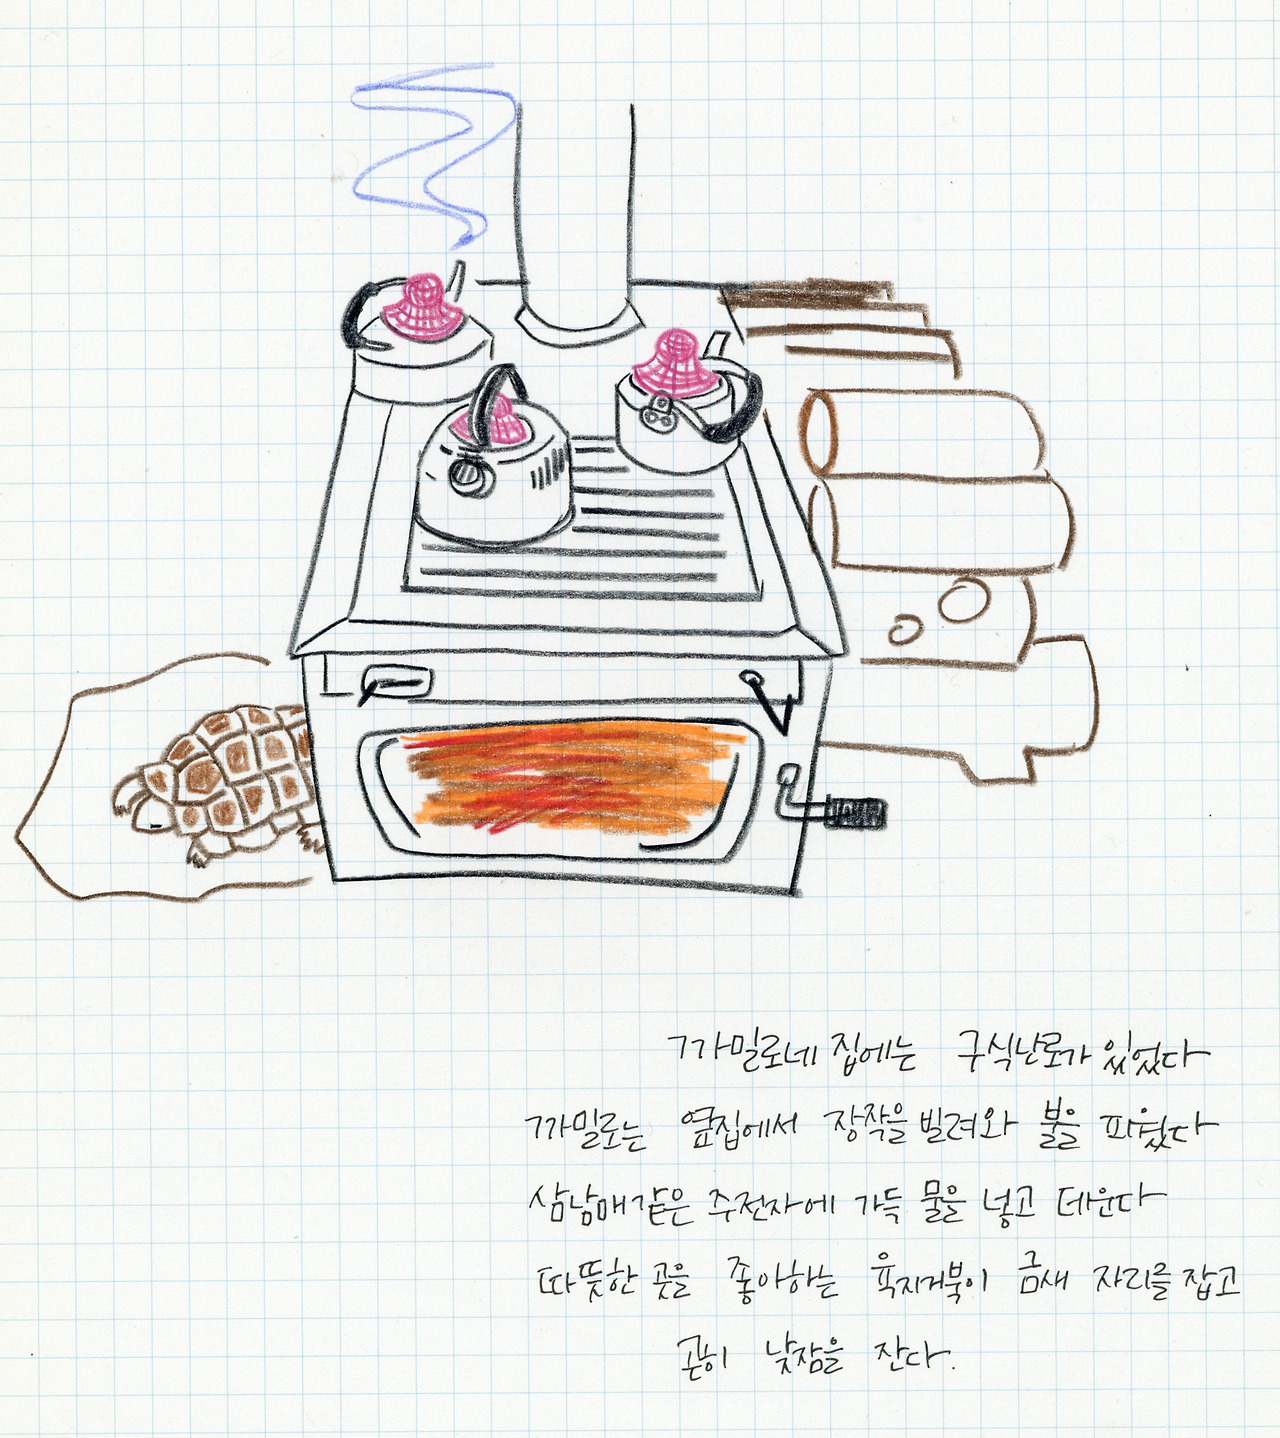 까밀로네 집에는 구식난로가 있었다
까밀로는 옆집에서 장작을 빌려와 불을 피웠다
삼남매같은 주전자에 가득 물을 넣고 데운다
따뜻한 곳을 좋아하는 육지거북이 금새 자리를 잡고
곤히 낮잠을 잔다.